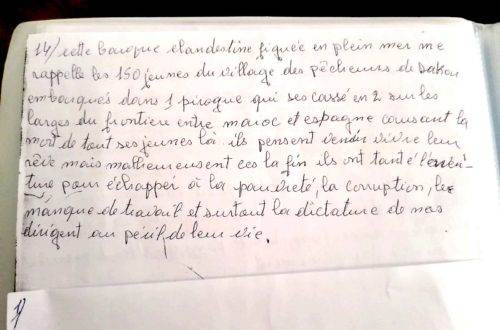 14/ cette barque clandestine fiquée en plein mer me
rappelle les 150 jeunes du village des pêcheurs de Dakar
embarqués dans 1 pirogue qui ses cassé en 2 sur les
larges du frontière entre maroc et espagne causant la
mort de tout ses jeunes là. ils pensent venir vivre leur
rêve mais malheureusent ces la fin ils ont tanté l'avén-
ture pour échapper à la pauvreté, la corruption, le
manque de travail et surtout la dictature de nos
dirigent au péril de leur vie.